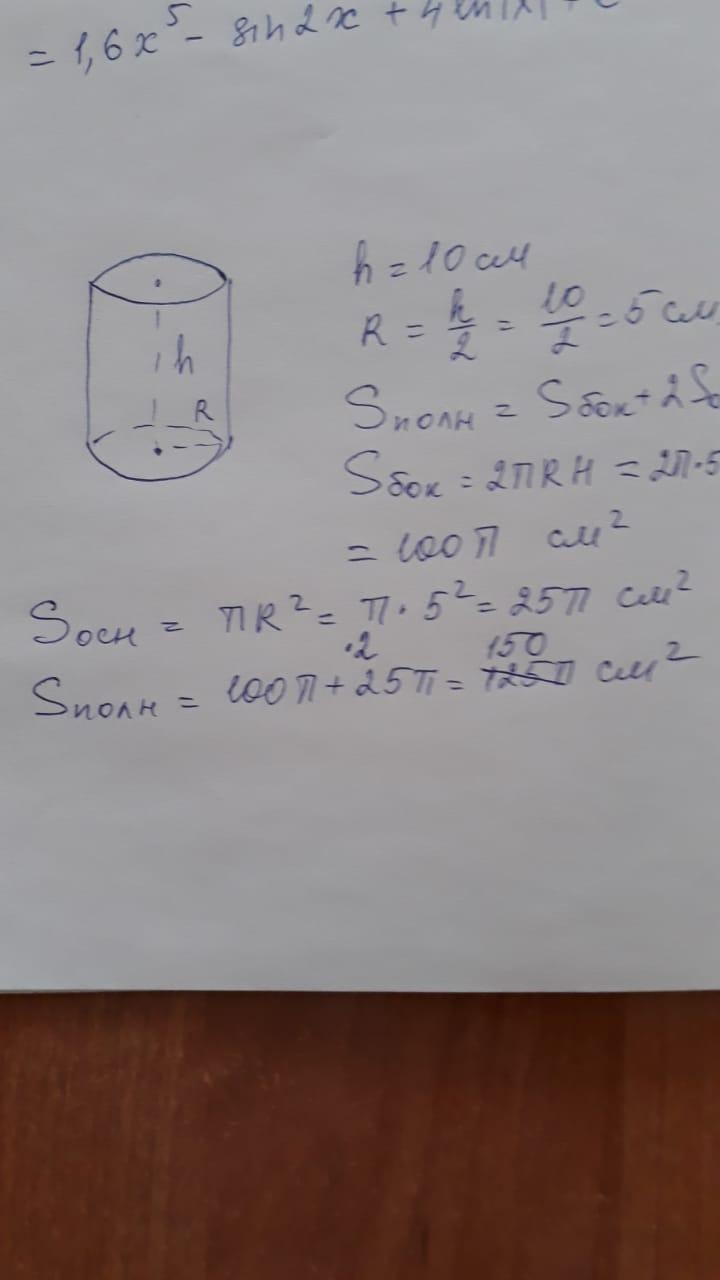 = 1,6x⁵ - sin2x + 4 ln|x| + C
h = 10 см
R = h/2 = 10/2 = 5 см
h
R
Sполн = Sбок + 2S
Sбок = 2πRH = 2π·5
= 100π см²
Sосн = πR² = π·5² = 25π см²
·2 150
Sполн = 100π + 25π = 125π см²